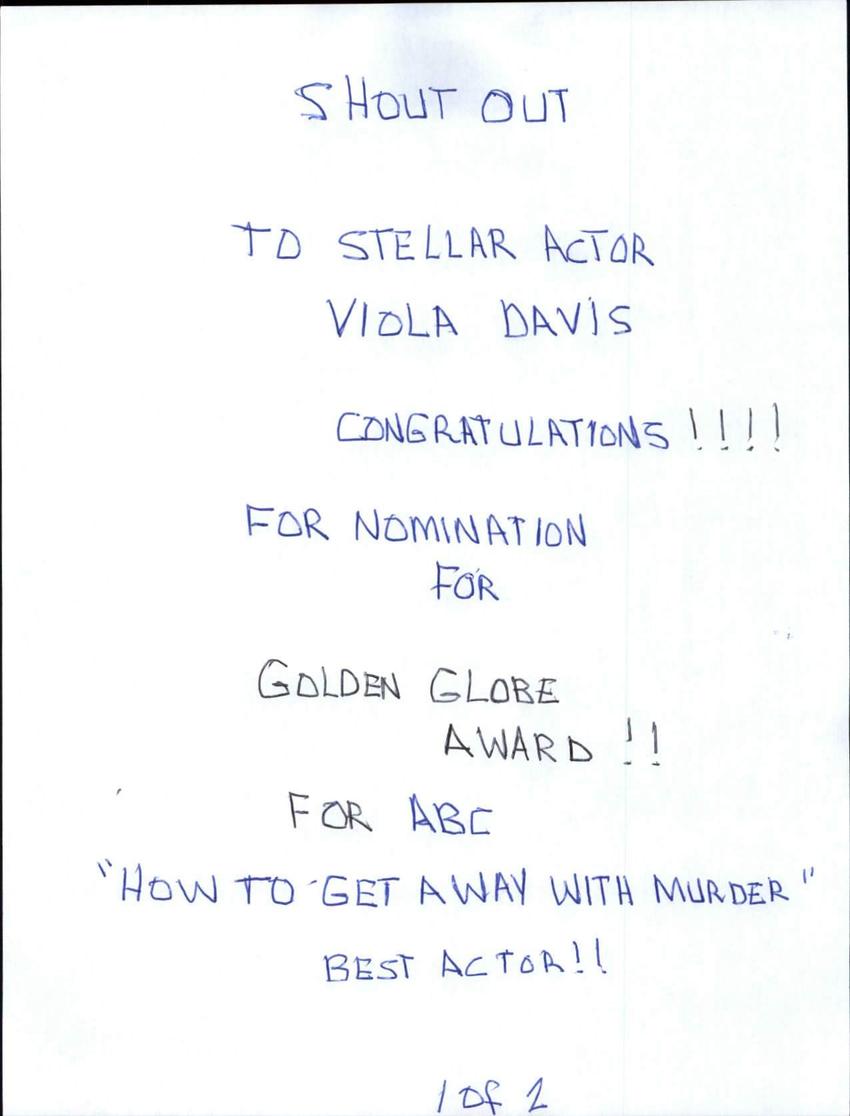 SHOUT OUT
TO STELLAR ACTOR
VIOLA DAVIS
CONGRATULATIONS !!!!
FOR NOMINATION
FOR
GOLDEN GLOBE
AWARD !!
FOR ABC
"HOW TO GET AWAY WITH MURDER"
BEST ACTOR!!
1 of 2